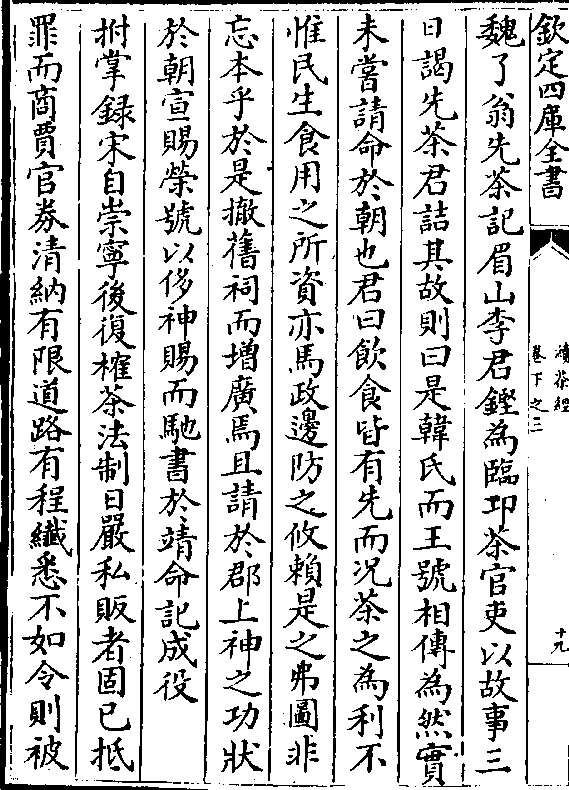 欽定四庫全書
續茶經
卷下之三
十九
魏了翁先茶記眉山李君鏗為臨卭茶官吏以故事三
日謁先茶君詰其故則曰是韓氏而王號相傳為然實
未嘗請命於朝也君曰飲食皆有先而况茶之為利不
惟民生食用之所資亦馬政邊防之攸賴是之弗圖非
忘本乎於是撤舊祠而增廣焉且請於郡上神之功狀
於朝宣賜榮號以侈神賜而馳書於靖命記成役
拊掌録宋自崇寧後復榷茶法制日嚴私販者固已抵
罪而商賈官券清納有限道路有程纎悉不如令則被